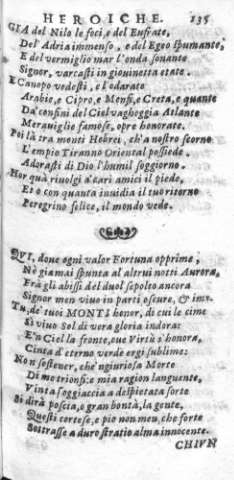 HEROICHE. 135
GIA del Nilo le foci, e del Eufrate,
Del' Adria immenso, e del Egeo spumante,
E del vermiglio mar l'onda sonante
Signor, varcasti in giouinetta etate.
E Canopo vedesti, e l'odorate
Arabie, e Cipro, e Menfi, e Creta, e quante
Da' confini del Ciel vagheggia Atlante
Merauiglie famose, opre honorate.
Poi là tra monti Hebrei, ch'a nostro scorno
L'empio Tiranno Oriental possiede,
Adorasti di Dio l'humil soggiorno.
Hor quà riuolgi a' cari amici il piede,
Et o con quanta inuidia il tuo ritorno
Peregrino felice, il mondo vede.
QVI, doue ogni valor Fortuna opprime,
Nè giamai spunta al altrui notti Aurora,
Frà gli abissi del duol sepolto ancora
Signor men viuo in parti oscure, & ime.
Tu, de' tuoi MONTI honor, di cui le cime
Sì viuo Sol di vera gloria indora:
E'n Ciel la fronte, oue Virtù s'honora,
Cinta d'eterno verde ergi sublime:
Non sostener, che'ngiuriosa Morte
Di me trionfi: e mia ragion languente,
Vinta soggiaccia a despietata sorte
Si dirà poscia, o gran bontà, la gente,
Questi cortese, e pio non men, che forte
Sottrasse a duro stratio alma innocente.
CHIVN